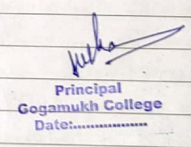 Principal
Gogamukh College
Date:..................